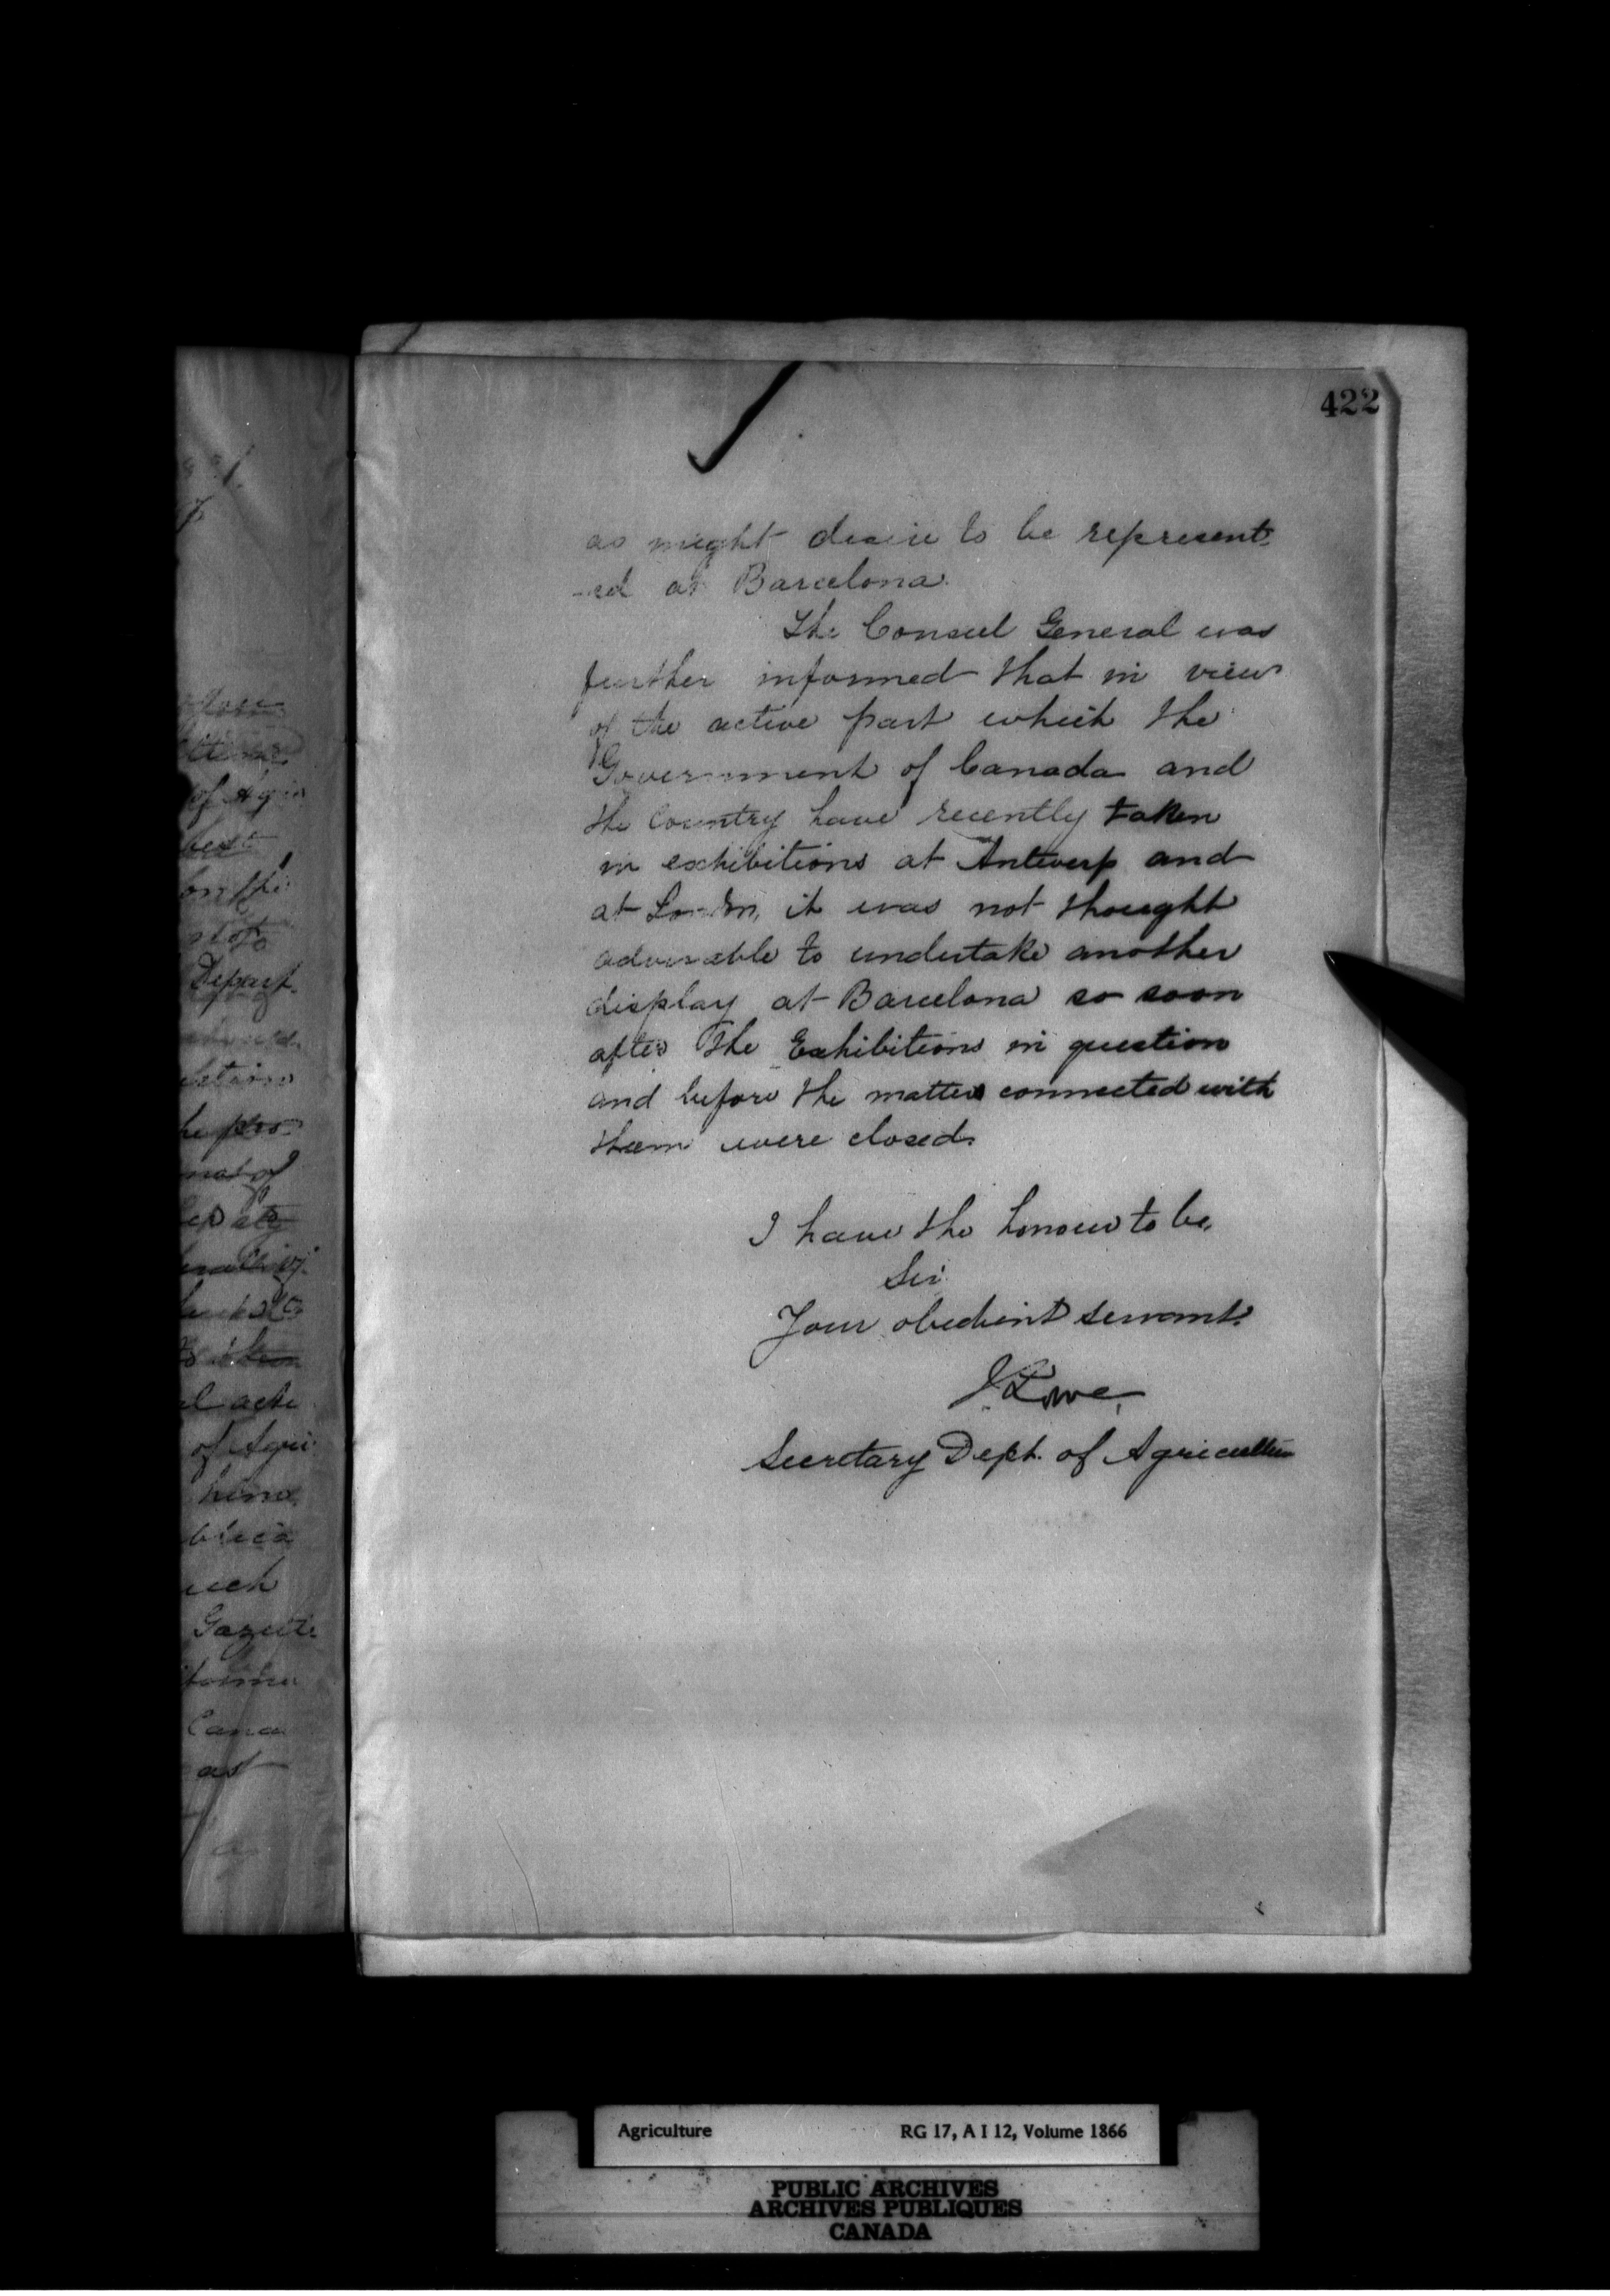 422
as might desire to be represent-
-ed at Barcelona.
The Consul General was
further informed that in view
of the active part which the
Government of Canada and
the Country have recently taken
in exhibitions at Antwerp and
at London, it was not thought
advisable to undertake another
display at Barcelona so soon
after the Exhibitions in question
and before the matters connected with
them were closed.
I have the honour to be,
Sir
Your obedient servant.
J. Lowe,
Secretary Dept. of Agriculture
of Agri
on the
Depart.
of Agri
Gazette
Cana
as
Agriculture RG 17, A I 12, Volume 1866
PUBLIC ARCHIVES
ARCHIVES PUBLIQUES
CANADA